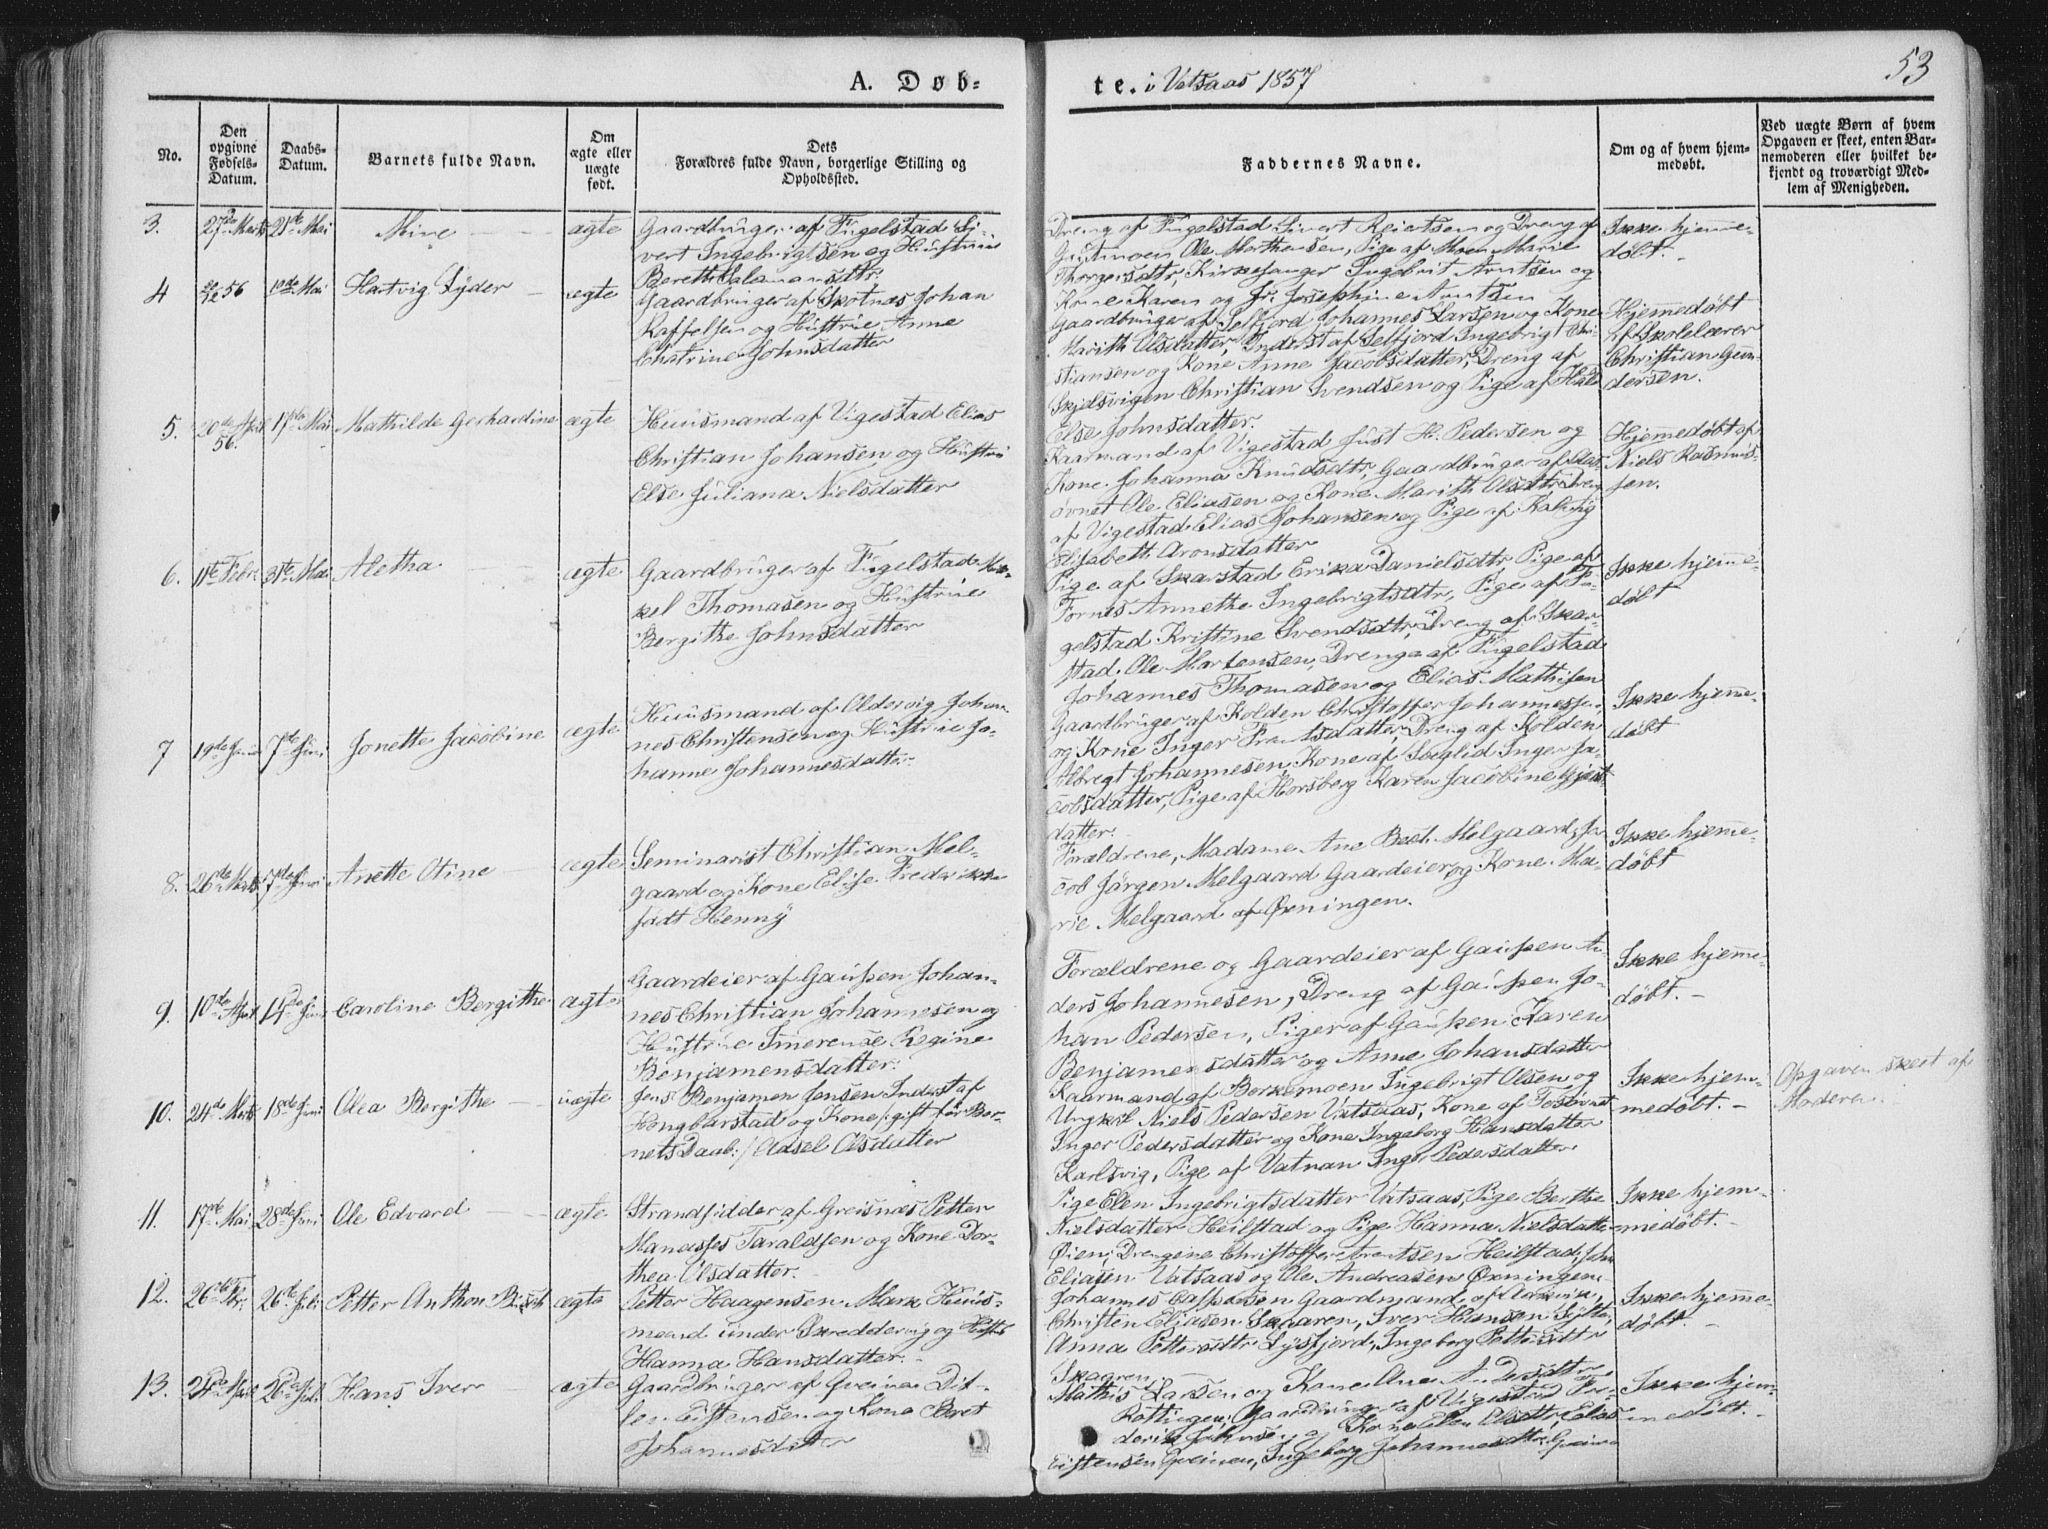 53
A. Døb-
te. i Vatsaas 1857
No.
Den opgivne Fødsels-Datum.
Daabs-Datum.
Barnets fulde Navn.
Om ægte eller uægte født.
Dets
Forældres fulde Navn, borgerlige Stilling og
Opholdssted.
Faddernes Navne.
Om og af hvem hjem-
medøbt.
Ved uægte Børn af hvem
Opgaven er skeet, enten Bar-
nemoderen eller hvilket be-
kjendt og troværdigt Med-
lem af Menigheden.
3. 27de Marts 21de Mai
ægte
Gaardbruger af Fugelstad Si-
vert Ingebrigtsen og Hustrue
Dreng af Fugelstad Sivert og Dreng af
Ole Morthensen, Pige af Moen Marie
Kirkesanger Ingebrit Arntsen og
Kone Karen og Josephine Arntsen
Ikke hjemme-
døbt.
4 56 Mai
Hartvig Lyder
ægte
Gaardbruger af Skotnæs Johan
Raffelsen og Hustrue Anne
Chatrine Johnsdatter
Gaardbruger af Selfjord Johannes Larsen og Kone
Marith Olsdatter, Inderst af Selfjord Ingebrigt Chri-
stiansen og Kone Anne Jacobsdatter, Dreng af
Christian Svendsen og Pige af
Else Johnsdatter.
Hjemmedøbt
af Skolelærer
Christian Gun-
dersen.
5. 20de 56. 17de Mai
Mathilde Gerhardine
ægte
Huusmand af Vigestad Elias
Christian Johansen og Hustru
Else Juliana Nielsdatter
Kaarmand af Vigestad Just H. Pedersen og
Kone Johanna Knudsdtr, Gaardbruger af
øvnet Ole Eliasen og Kone Marith Olsdtr, Dreng
af Vigestad Elias Johansen og Pige af
Elisabeth Aronsdatter
Hjemmedøbt af
Niels Rasmus-
sen.
6. 11te Febr 31te Mai
Aletha
ægte
Gaardbruger af Fugelstad Mi-
kel Thomasen og Hustrue
Bergithe Johnsdatter
Pige af Skarstad Erika Danielsdtr, Pige af
Fornes Annethe Ingebrigtsdtr, Pige af Fu-
gelstad Kristine Svendsdtr, Dreng af Skar-
stad Ole Mortensen, Drenge af Fugelstad
Johannes Thomasen og Elias Mathisen
Ikke hjemme-
døbt
7 19de 7de Juni
Jonette Jacobine
ægte
Huusmand af Oldervig Johan-
nes Christensen og Hustrue Jo-
hanne Johannesdatter
Gaardbruger af Kolden Christoffer Johannessen
og Kone Inger Frantsdatter, Dreng af Kolden
Albregt Johannesen, Kone af Inger Ja-
cobsdatter, Pige af Horsberg Karen Jacobine
datter.
Ikke hjemme-
døbt
8. 26de Marts 7de Juni
Anette Otine
ægte
Seminarist Christian Mel-
gaard og Kone Elise Fredrikke
født Henny
Forældrene, Madame Ane Beat. Melgaard, Ja-
cob Jörgen Melgaard Gaardeier og Kone Ma-
rie Melgaard af Øxningen.
Ikke hjemme-
døbt
9. 10de April 14de Juni
Caroline Bergithe
ægte
Gaardeier af Gaupen Johan-
nes Christian Johannesen og
Hustrue Imerense Regine
Benjamensdatter.
Forældrene og Gaardeier af Gaupen An-
ders Johannesen, Dreng af Gaupen Jo-
han Pedersen, Piger af Gaupen Karen
Benjamensdatter og Anne Johansdatter
Ikke hjemme-
døbt.
10. 24de Marts 18de Juni
Olea Bergithe
uægte
Jens Benjamen Jensen Inderst af
Hongbarstad og Kone /: gift før Bar-
nets Daab: / Aasel Olsdatter
Kaarmand af Borkemoen Ingebrigt Olsen og
Ungkarl Niels Pedersen Vatsaas, Kone af
Inger Pedersdatter og Kone Ingeborg Hansdatter
Karlsvig, Pige af Vatnan Inger Pedersdatter
Ikke hjem-
medøbt.
Opgaven skeet af
Moderen.
11. 17de Mai 28de Juni
Ole Edvard
ægte
Strandsidder af Greisnæs Petter
Manasses Taraldsen og Kone Dor-
thea Olsdatter.
Pige Elen Ingebrigtsdatter Vatsaas, Pige Berthe
Nielsdatter Heilstad og Pige Hanna Nielsdatter
Øien, Drengene Christoffer Arentsen Heilstad, John
Eliasen Vatsaas og Ole Andreasen Øxningen.
Ikke hjem-
medøbt.
12. 26de 26de Juli
Petter Anthon
ægte
Petter Haagensen Mark Huus-
mand under Skreddervig og Hustrue
Hanna Hansdatter.
Johannes Gaardmand af
Christen Eliasen Skaaren, Iver Hansen
Anna Pettersdtr Lysfjord, Ingeborg Pettersdtr
Skagren.
Ikke hjemme-
døbt.
13. 24de 26de Juli
Hans Iver
ægte
Gaardbruger af Greinen Dit-
lev Eistensen og Kone Beret
Johannesdatter
Mathis Larsen og Kone Ane Andersdtr
Gaardbruger af Vigestad Fre-
derik Johnsen og Kone Elen Olsdtr, Elias
Eistensen Greinen, Ingeborg Johannesdtr Greinen
Ikke hjem-
medøbt.